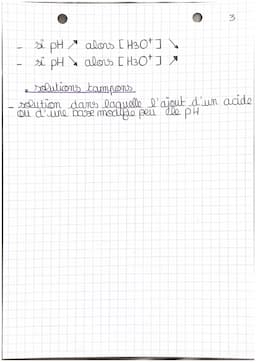 3
- si pH ↗ alors [H3O⁺] ↘
- si pH ↘ alors [H3O⁺] ↗
• solutions tampons
- solution dans laquelle l'ajout d'un acide
ou d'une base modifie peu le pH